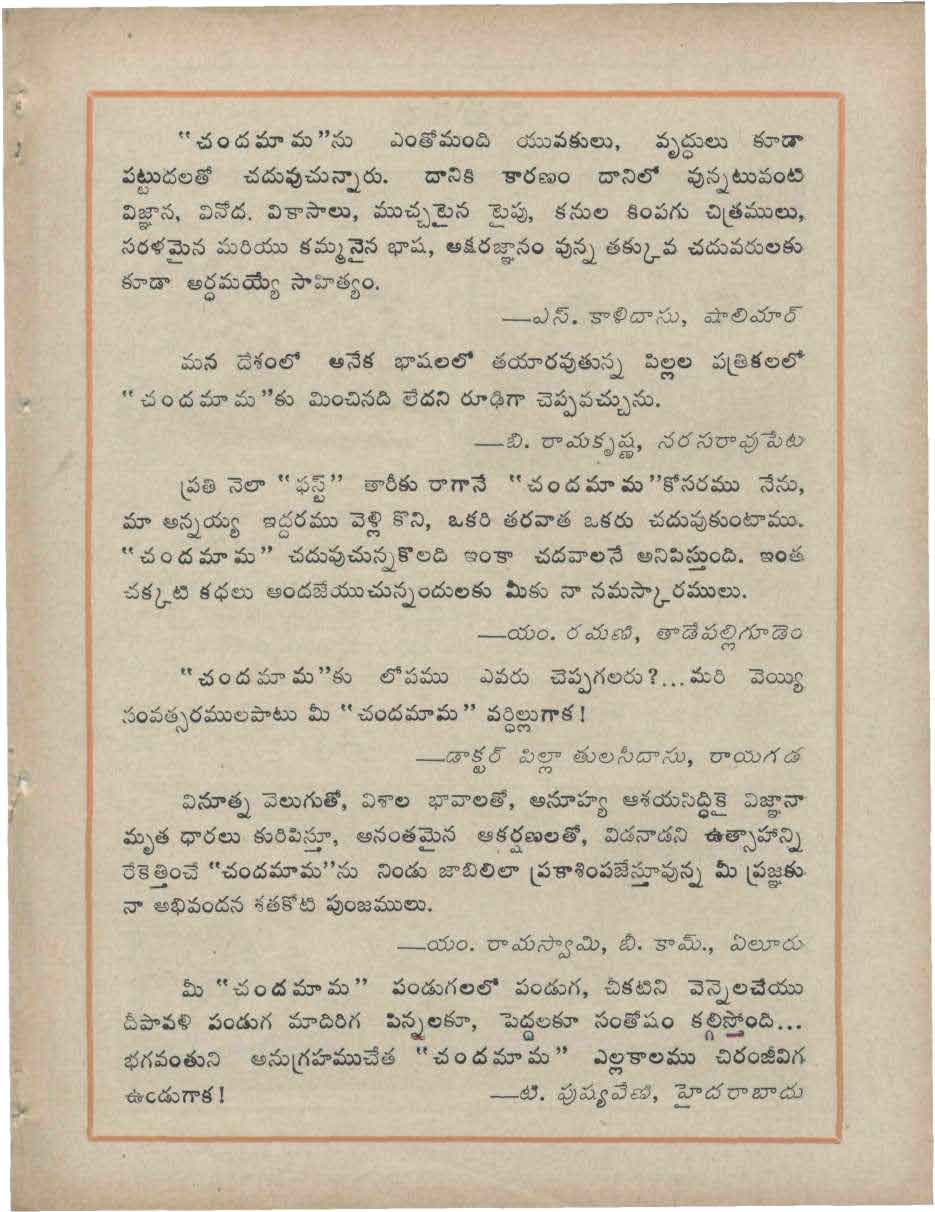 “చందమామ”ను ఎంతోమంది యువకులు, వృద్ధులు కూడా
పట్టుదలతో చదువుచున్నారు. దానికి కారణం దానిలో వున్నటువంటి
విజ్ఞాన, వినోద. వికాసాలు, ముచ్చటైన టైపు, కనుల కింపగు చిత్రములు,
సరళమైన మరియు కమ్మనైన భాష, అక్షరజ్ఞానం వున్న తక్కువ చదువరులకు
కూడా అర్ధమయ్యే సాహిత్యం.
—ఎస్. కాళిదాసు, షాలిమార్
మన దేశంలో అనేక భాషలలో తయారవుతున్న పిల్లల పత్రికలలో
“చందమామ”కు మించినది లేదని రూఢిగా చెప్పవచ్చును.
—బి. రామకృష్ణ, నరసరావుపేట
ప్రతి నెలా “ఫస్ట్” తారీకు రాగానే “చందమామ”కోసరము నేను,
మా అన్నయ్య ఇద్దరము వెళ్లి కొని, ఒకరి తరవాత ఒకరు చదువుకుంటాము.
“చందమామ” చదువుచున్నకొలది ఇంకా చదవాలనే అనిపిస్తుంది. ఇంత
చక్కటి కధలు అందజేయుచున్నందులకు మీకు నా నమస్కారములు.
—యం. రమణి, తాడేపల్లిగూడెం
“చందమామ”కు లోపము ఎవరు చెప్పగలరు?...మరి వెయ్యి
సంవత్సరములపాటు మీ “చందమామ” వర్ధిల్లుగాక!
—డాక్టర్ పిల్లా తులసీదాసు, రాయగడ
వినూత్న వెలుగుతో, విశాల భావాలతో, అనూహ్య ఆశయసిద్ధికై విజ్ఞానా
మృత ధారలు కురిపిస్తూ, అనంతమైన ఆకర్షణలతో, విడనాడని ఉత్సాహాన్ని
రేకెత్తించే “చందమామ”ను నిండు జాబిలిలా ప్రకాశింపజేస్తూవున్న మీ ప్రజ్ఞకు
నా అభివందన శతకోటి పుంజములు.
—యం. రామస్వామి, బీ. కామ్., ఏలూరు
మీ “చందమామ” పండుగలలో పండుగ, చీకటిని వెన్నెలచేయు
దీపావళి పండుగ మాదిరిగ పిన్నలకూ, పెద్దలకూ సంతోషం కల్గిస్తోంది...
భగవంతుని అనుగ్రహముచేత “చందమామ” ఎల్లకాలము చిరంజీవిగ
ఉండుగాక! —టి. పుష్యవేణి, హైదరాబాదు